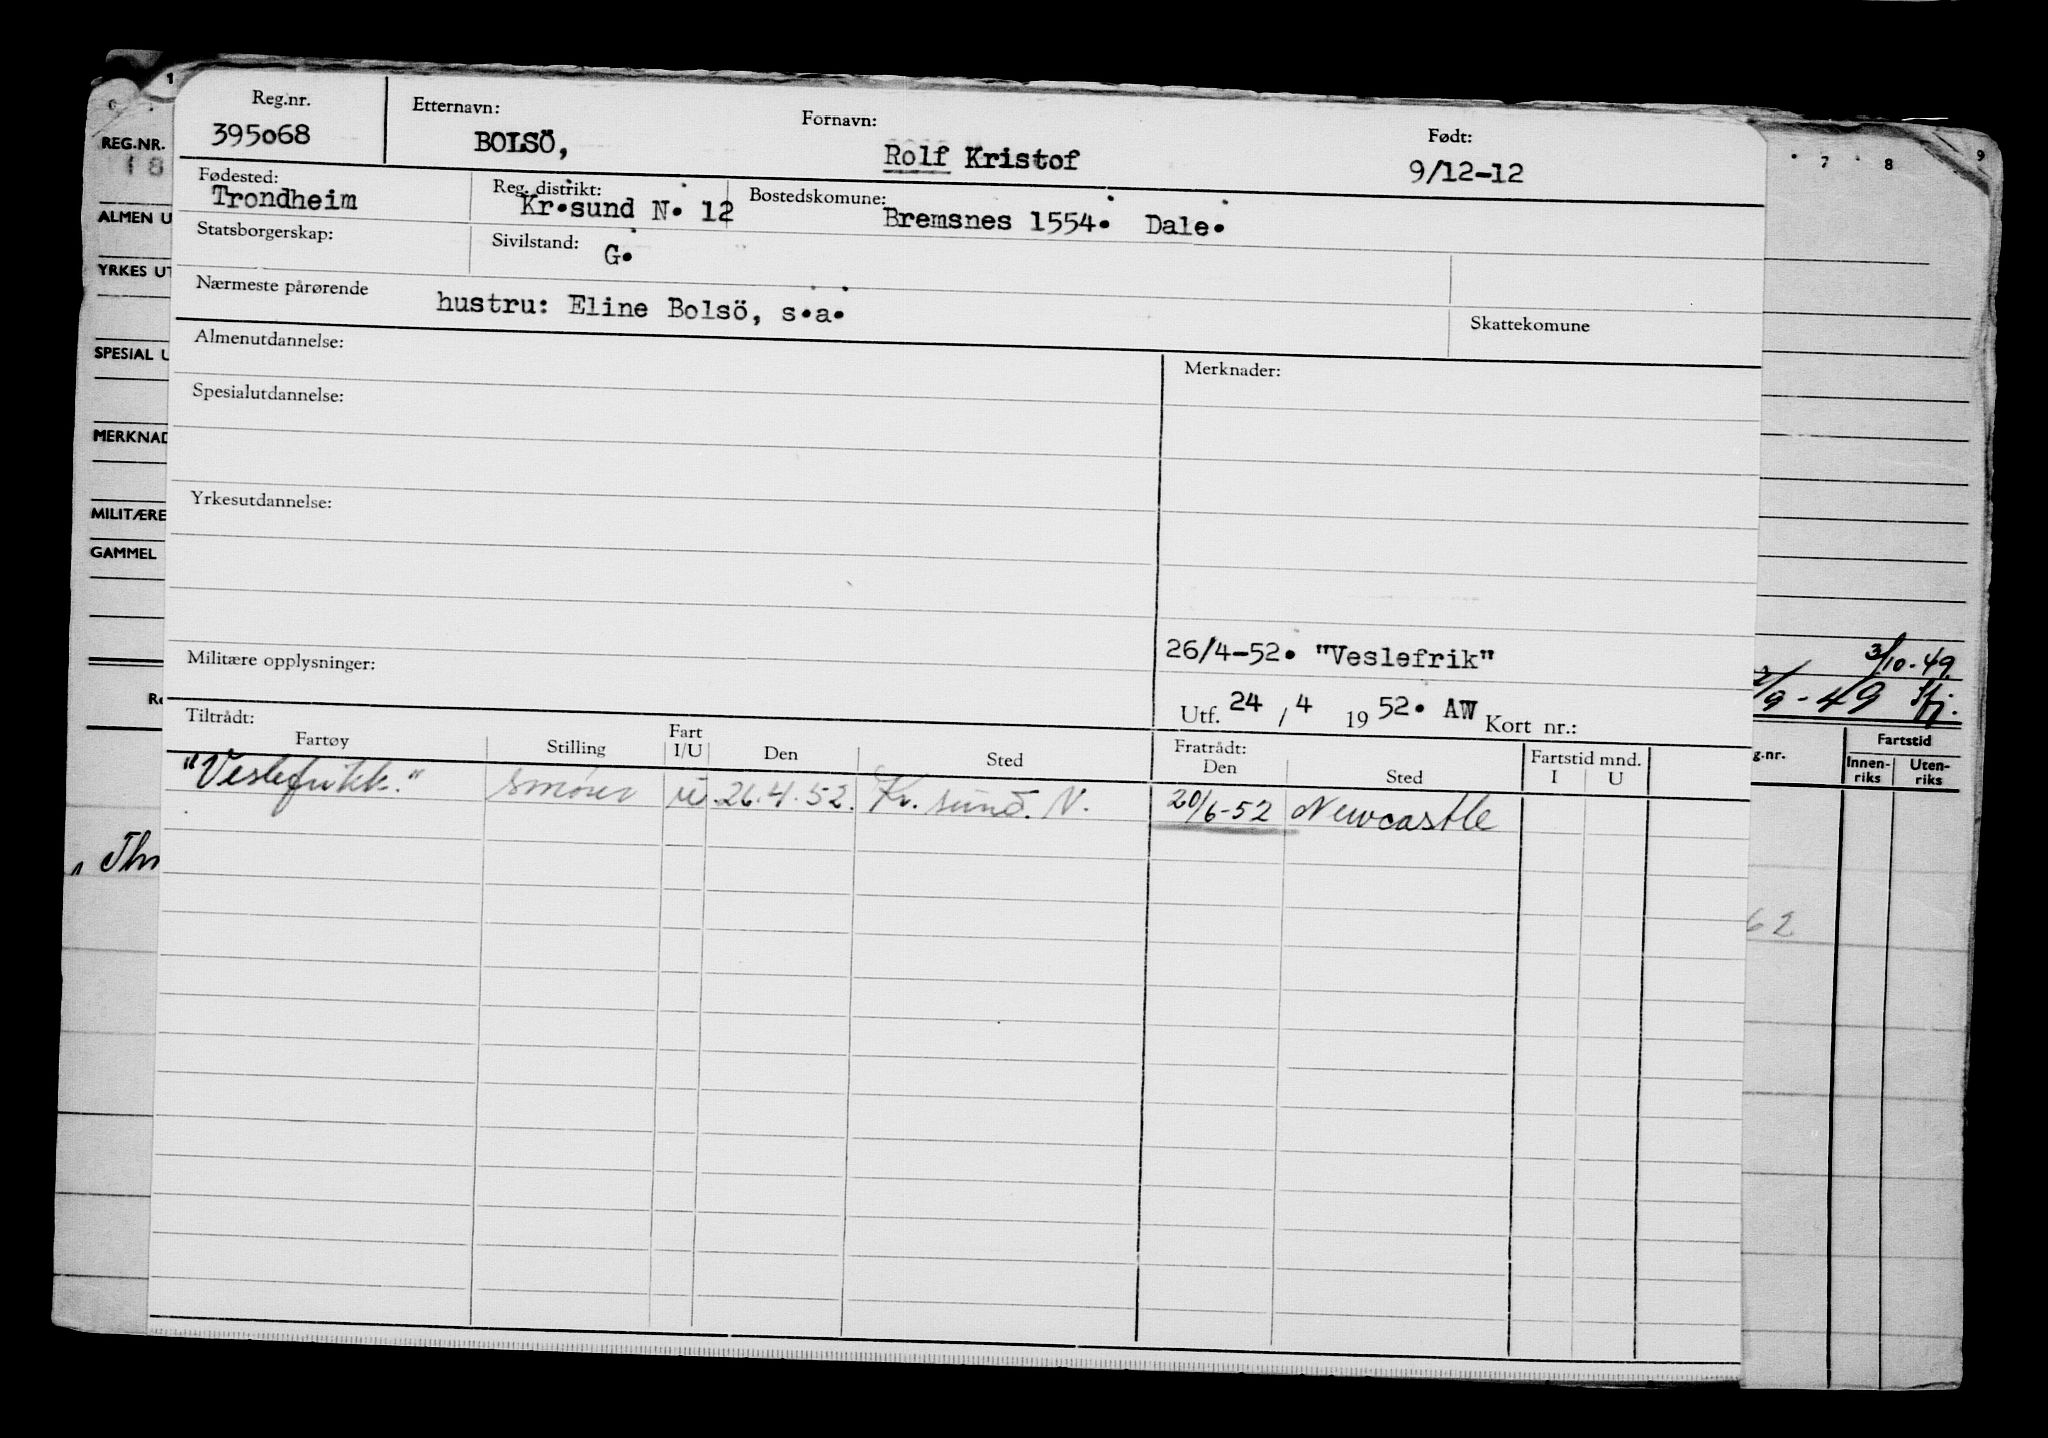 1
Reg.nr. Etternavn: Fornavn: Født:
395068 BOLSÖ, Rolf Kristof 9/12-12
REG.NR. 7 8 9
18
Fødested: Reg. distrikt: Bostedskomune:
Trondheim Kr.sund N. 12 Bremsnes 1554. Dale.
ALMEN U
Statsborgerskap: Sivilstand:
G.
YRKES UT
Nærmeste pårørende hustru: Eline Bolsö, s.a. Skattekomune
SPESIAL U
Almenutdannelse: Merknader:
Spesialutdannelse:
MERKNAD
Yrkesutdannelse:
MILITÆRE
GAMMEL
Militære opplysninger: 26/4-52. "Veslefrik" 3/10-49.
2/9-49
Utf. 24 / 4 19 52. AW Kort nr.:
Re
Tiltrådt: Fratrådt: Fartstid mnd. g.nr. Fartstid
Fartøy Stilling Fart I/U Den Sted Den Sted I U Innen-riks Uten-riks
"Veslefrikk." smører u. 26.4.52. Kr. sund. N. 20/6-52 Newcastle
62